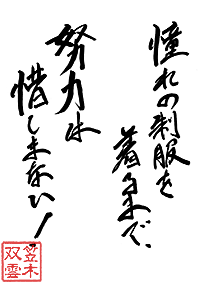 憧れの制服を
着るまで、
努力は
惜しまない！
笠木
双雲